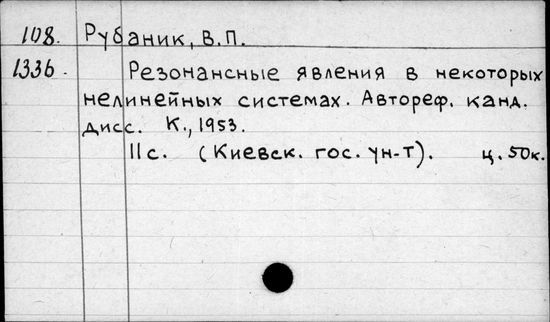 108. Рубаник, В.П.
1336. Резонансные явления в некоторых
нелинейных системах. Автореф. канд.
дисс. К., 1953.
11с. (Киевск. гос. ун-т). ц. 50к.